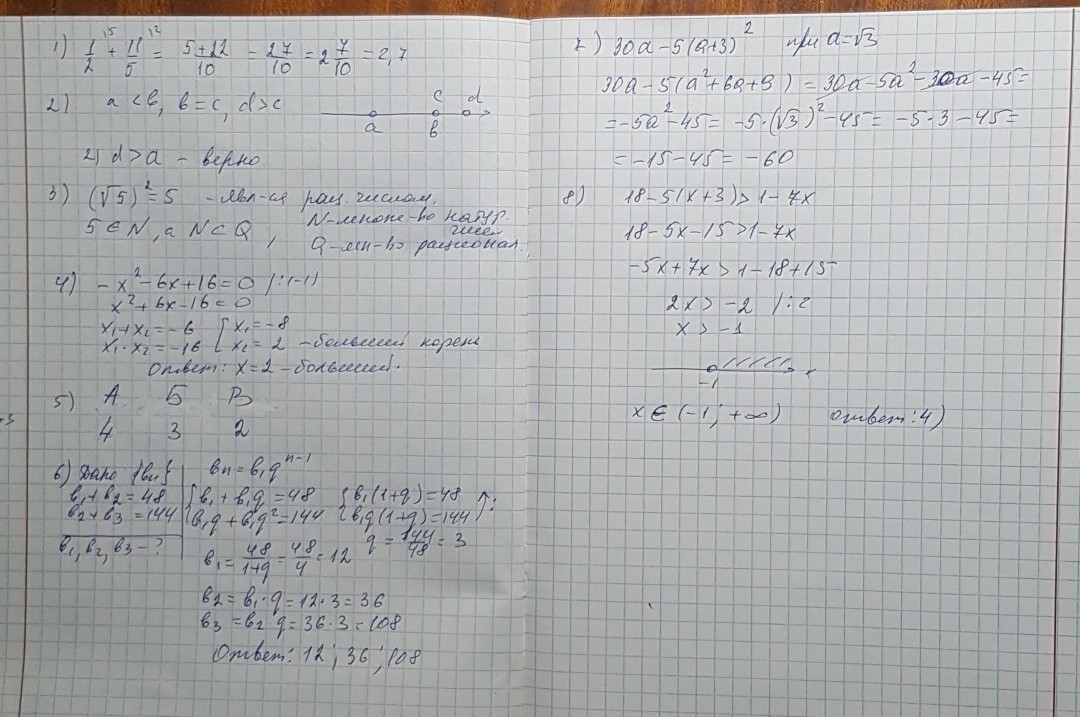 1) 1/2 + 11/5 = 5+22/10 = 27/10 = 2 7/10 = 2,7
2) a < b, b = c, d > c
c d
a b
2) d > a – верно
3) (√5)² = 5 – явл-ся рац. числом,
5 ∈ N, а N ⊂ Q, N – множе-во натур. чисел
Q – мн-во рационал.
4) –x² – 6x + 16 = 0 /:(–1)
x² + 6x – 16 = 0
x₁ + x₂ = –6 [ x₁ = –8
x₁ · x₂ = –16 [ x₂ = 2 – больший корень
Ответ: x = 2 – больший.
5) А Б В
4 3 2
6) Дано {bn} bn = b₁qⁿ⁻¹
b₁ + b₂ = 48 { b₁ + b₁q = 48 { b₁(1+q) = 48
b₂ + b₃ = 144 { b₁q + b₁q² = 144 { b₁q(1+q) = 144 ↑:
b₁, b₂, b₃ – ? q = 144/48 = 3
b₁ = 48/1+q = 48/4 = 12
b₂ = b₁ · q = 12 · 3 = 36
b₃ = b₂ · q = 36 · 3 = 108
Ответ: 12; 36; 108
7) 30a – 5(a+3)² при a = √3
30a – 5(a² + 6a + 9) = 30a – 5a² – 30a – 45 =
= –5a² – 45 = –5 · (√3)² – 45 = –5 · 3 – 45 =
= –15 – 45 = –60
8) 18 – 5(x+3) > 1 – 7x
18 – 5x – 15 > 1 – 7x
–5x + 7x > 1 – 18 + 15
2x > –2 /:2
x > –1
–1 x
x ∈ (–1; +∞) Ответ: 4)